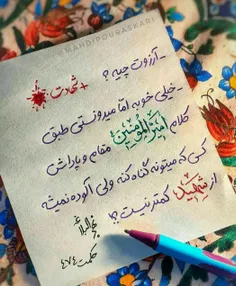 @MAHDIPOURASKARI
- آرزوت چیه ؟
+ شهادت
- خیلی خوبه امّا میدونستی طبق
کلام امیرالمؤمنین مقام و پاداش
کسی که میتونه گناه کنه ولی آلوده نمیشه
از شهید کمتر نیست ؟!
نهج البلاغه
حکمت ۴۷۴